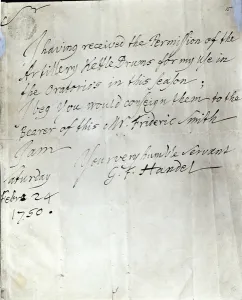 Sr
I having received the Permission of the
Artillery Kettle Drums for my use in
the Oratorio's in this Season;
I beg you would consign them to the
Bearer of this Mr. Frideric Smith
I am
Your very humble servant
G. F. Handel
Saturday
Febr: 24
1750.